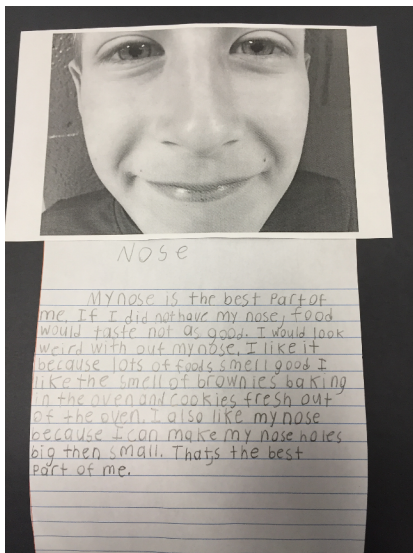 Nose
My nose is the best part of
me. If I did not have my nose, food
would taste not as good. I would look
weird with out my nose. I like it
because lots of foods smell good I
like the smell of brownies baking
in the oven and cookies fresh out
of the oven. I also like my nose
because I can make my nose holes
big then small. Thats the best
part of me.